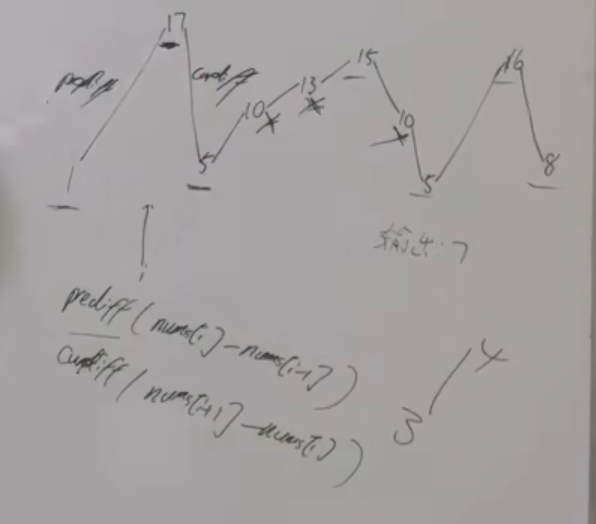 17
prediff
curdiff
15
13
10
16
10
5
8
1
5
输出:7
i
prediff(nums[i]-nums[i-1])
curdiff(nums[i+1]-nums[i])
4
3